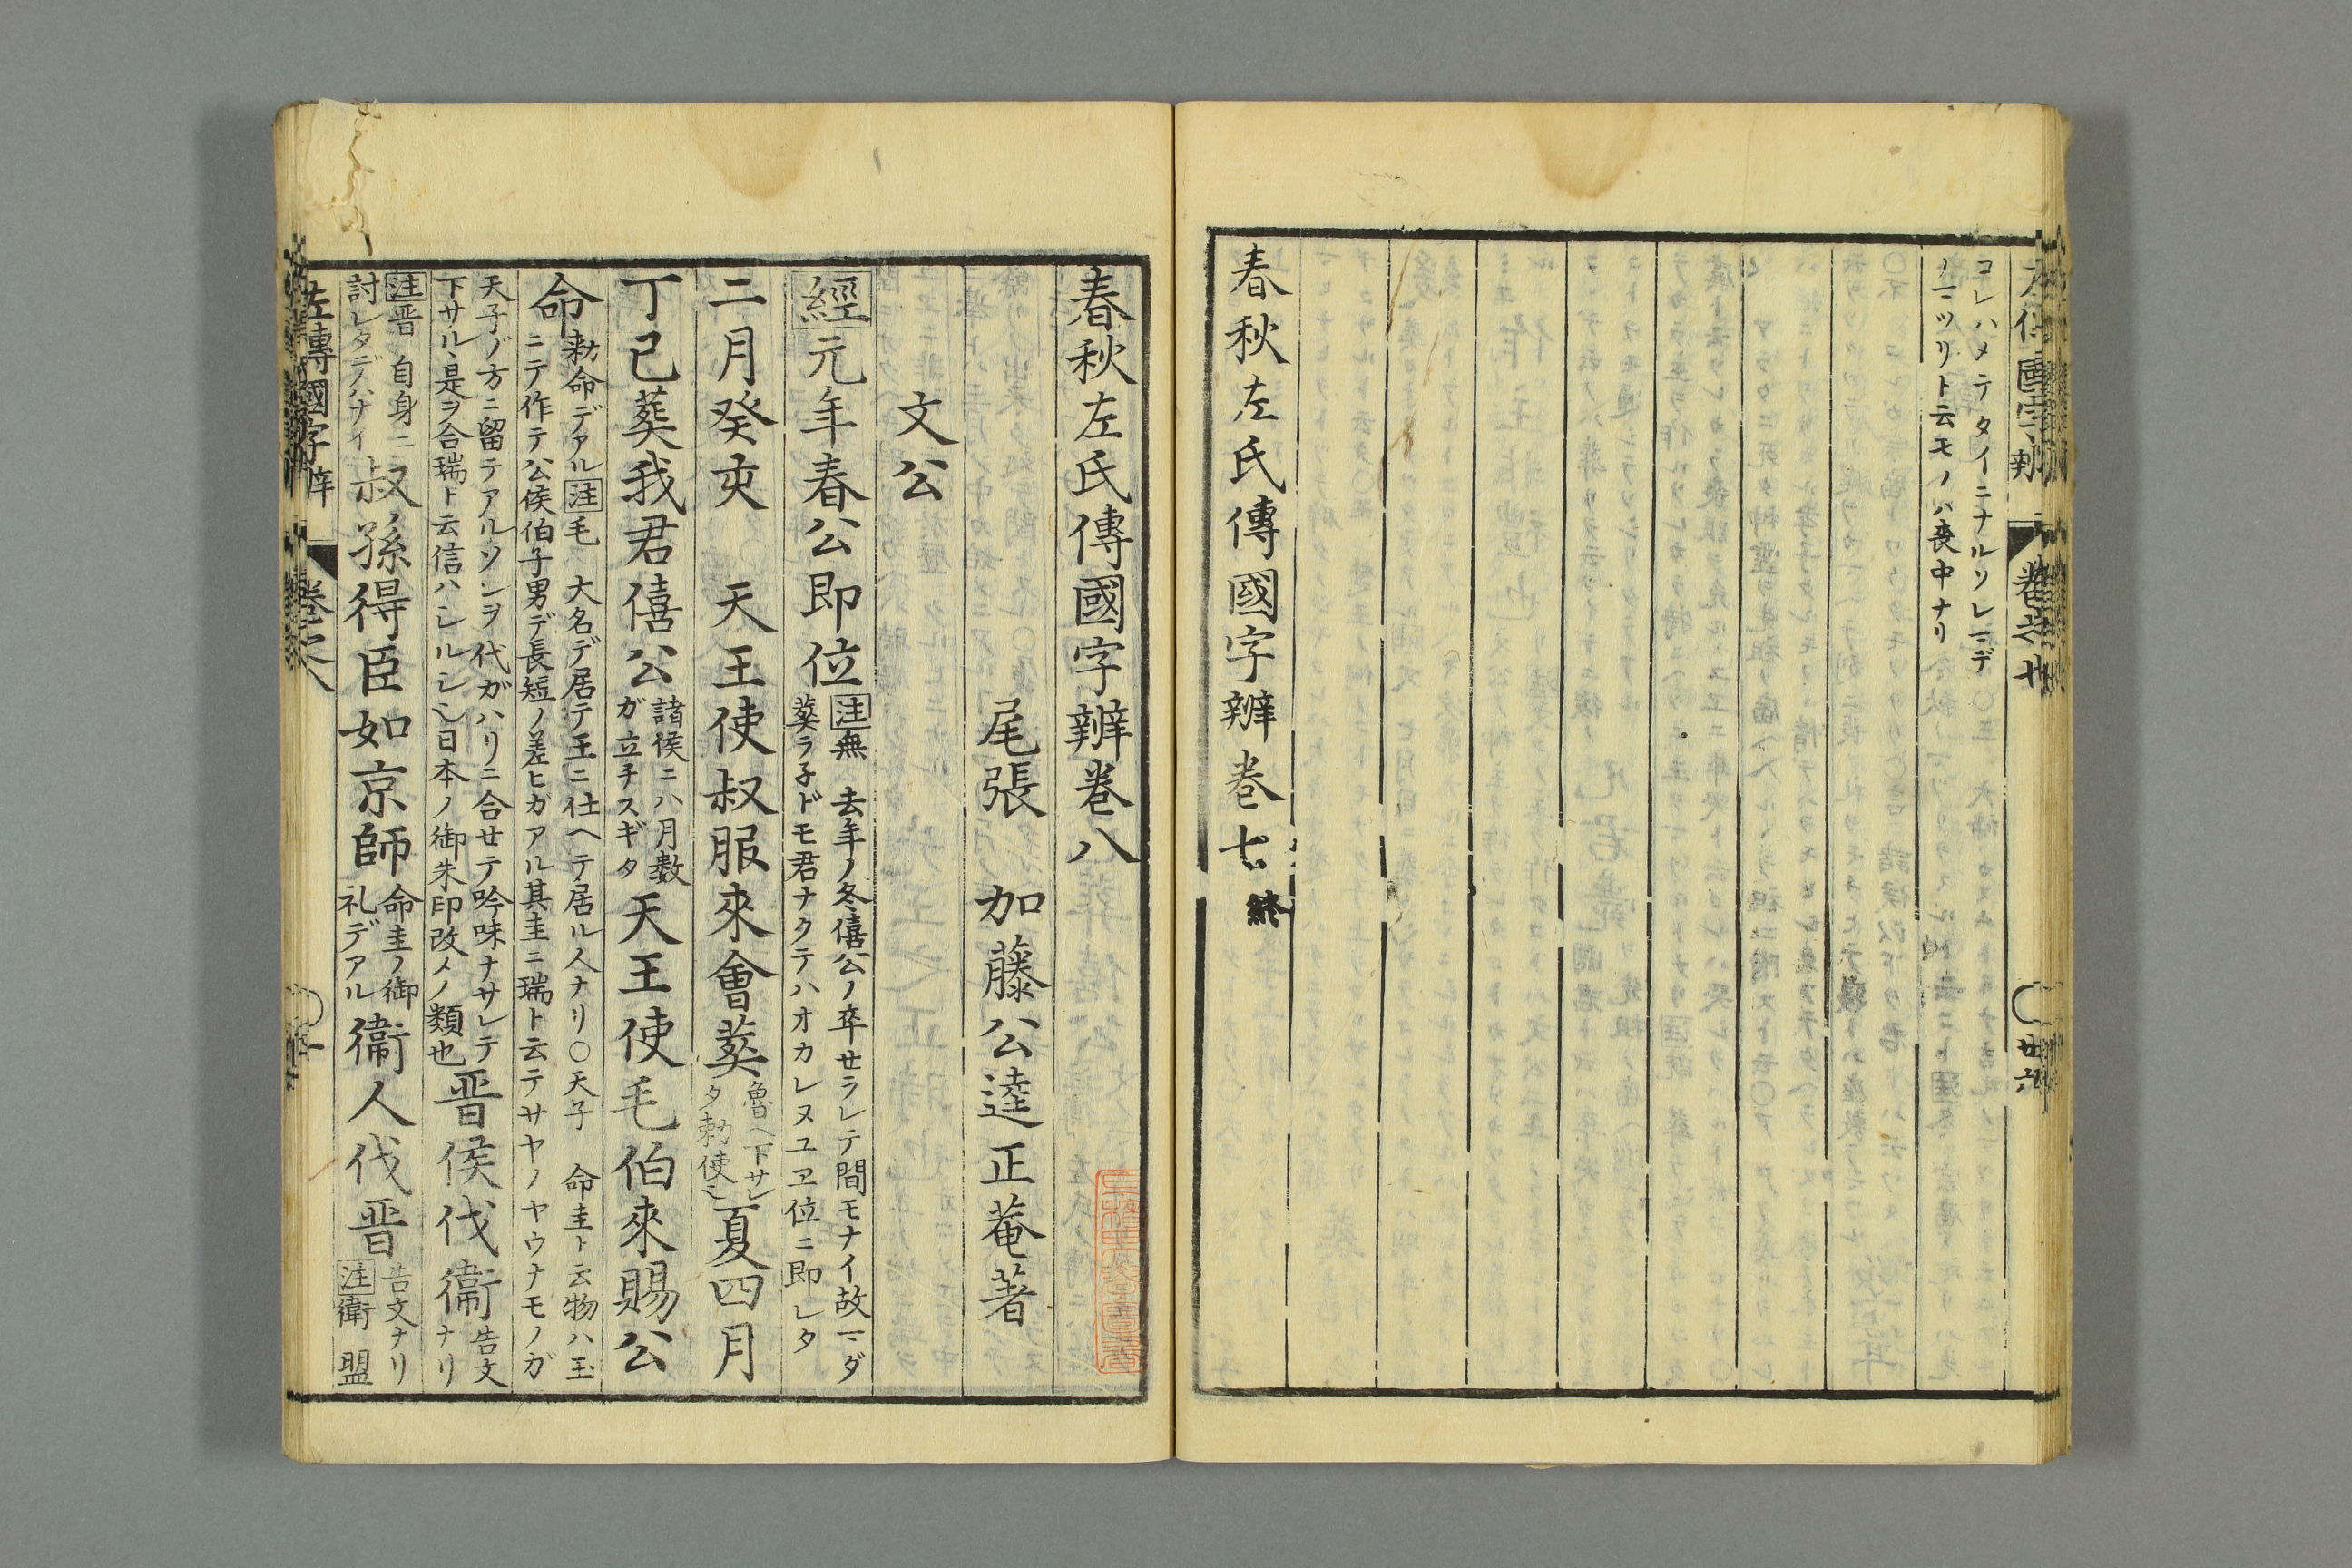 コレハメテタイニナルソレニデ
ノ一ツリト云モノハ喪中ナリ
春秋左氏傳國字辨卷七 終
廿六
春秋左氏傳國字辨卷八
尾張 加藤公逵正菴著
文公
經元年春公即位
注無 去年ノ冬僖公ノ卒セラレテ間モナイ故マダ
葬ラ子ドモ君ナクテハオカレヌユヱ位ニ即レタ
二月癸亥 天王使叔服來會葬
魯ヘ下サレ
タ勅使也
夏四月
丁巳葬我君僖公
諸侯ニハ月数
ガ立チスギタ
天王使毛伯來賜公
命
勅命デアル注毛 大名デ居テ王ニ仕ヘテ居ル人ナリ〇天子 命圭ト云物ハ玉
ニテ作テ公侯伯子男デ長短ノ差ヒガアル其圭ニ瑞ト云テサヤノヤウナモノガ
天子ノ方ニ留テアルソレヲ代ガハリニ合セテ吟味ナサレテ
下サル是ヲ合瑞ト云信ハシルシ也日本ノ御朱印改メノ類也
晋侯伐衞
告文
ナリ
注晋 自身ニ
討レタデハナイ
叔孫得臣如京師
命圭ノ御
礼デアル
衞人伐晋
告文ナリ
注衛 盟
左傳國字辨 卷之八